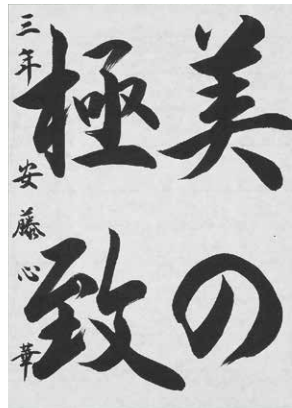 美の
極致
三年 安藤心華